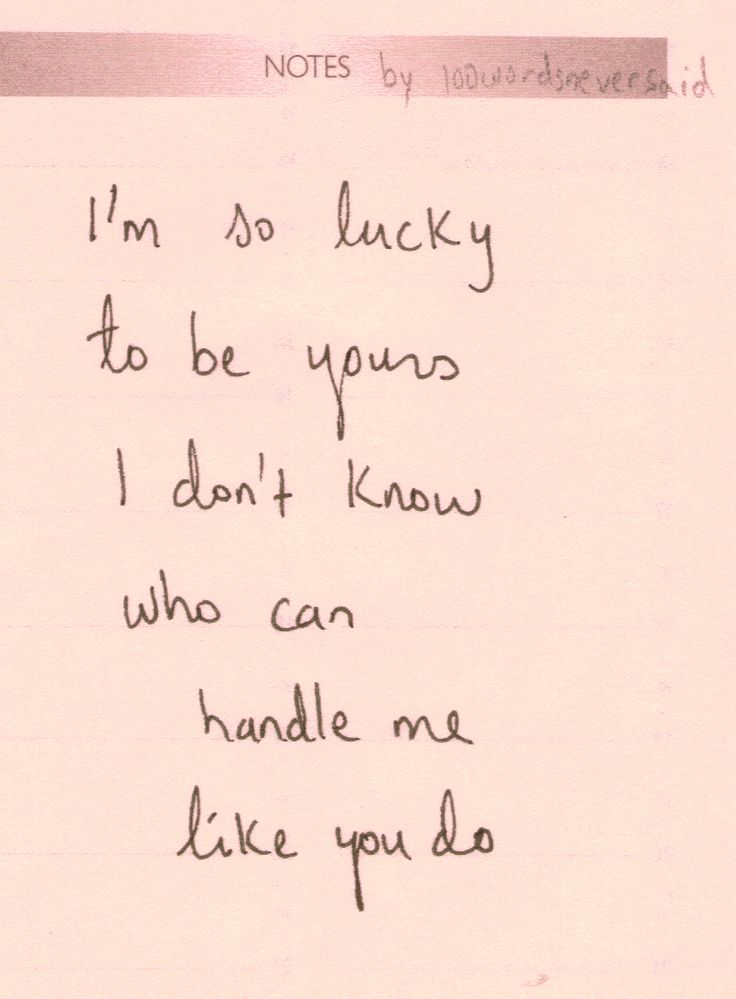 NOTES by 100wordsneversaid
I'm so lucky
to be yours
I don't know
who can
handle me
like you do